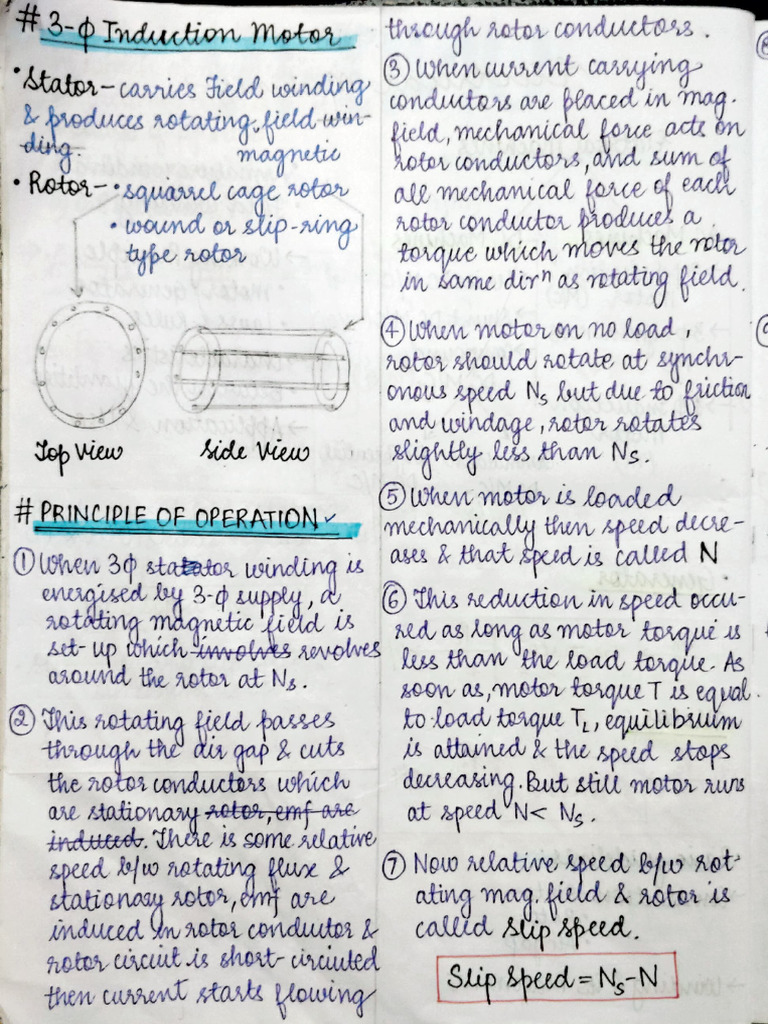 # 3-ϕ Induction Motor
• Stator - carries Field winding
& produces rotating field win-
ding. magnetic
• Rotor - • squarrel cage rotor
• wound or slip-ring
type rotor
Top View Side View
# PRINCIPLE OF OPERATION
① When 3ϕ statator winding is
energised by 3-ϕ supply, a
rotating magnetic field is
set-up which involves revolves
around the rotor at Ns.
② This rotating field passes
through the air gap & cuts
the rotor conductors which
are stationary rotor, emf are
induced. There is some relative
speed b/w rotating flux &
stationary rotor, emf are
induced in rotor conductor &
rotor circuit is short-circuited
then current starts flowing
through rotor conductors.
③ When current carrying
conductors are placed in mag.
field, mechanical force acts on
rotor conductors, and sum of
all mechanical force of each
rotor conductor produces a
torque which moves the rotor
in same dirⁿ as rotating field.
④ When motor on no load,
rotor should rotate at synchr-
onous speed Ns but due to friction
and windage, rotor rotates
slightly less than Ns.
⑤ When motor is loaded
mechanically then speed decre-
ases & that speed is called N
⑥ This reduction in speed occu-
red as long as motor torque is
less than the load torque. As
soon as, motor torque T is equal
to load torque TL, equilibrium
is attained & the speed stops
decreasing. But still motor runs
at speed N < Ns.
⑦ Now relative speed b/w rot-
ating mag. field & rotor is
called Slip Speed.
Slip Speed = Ns - N